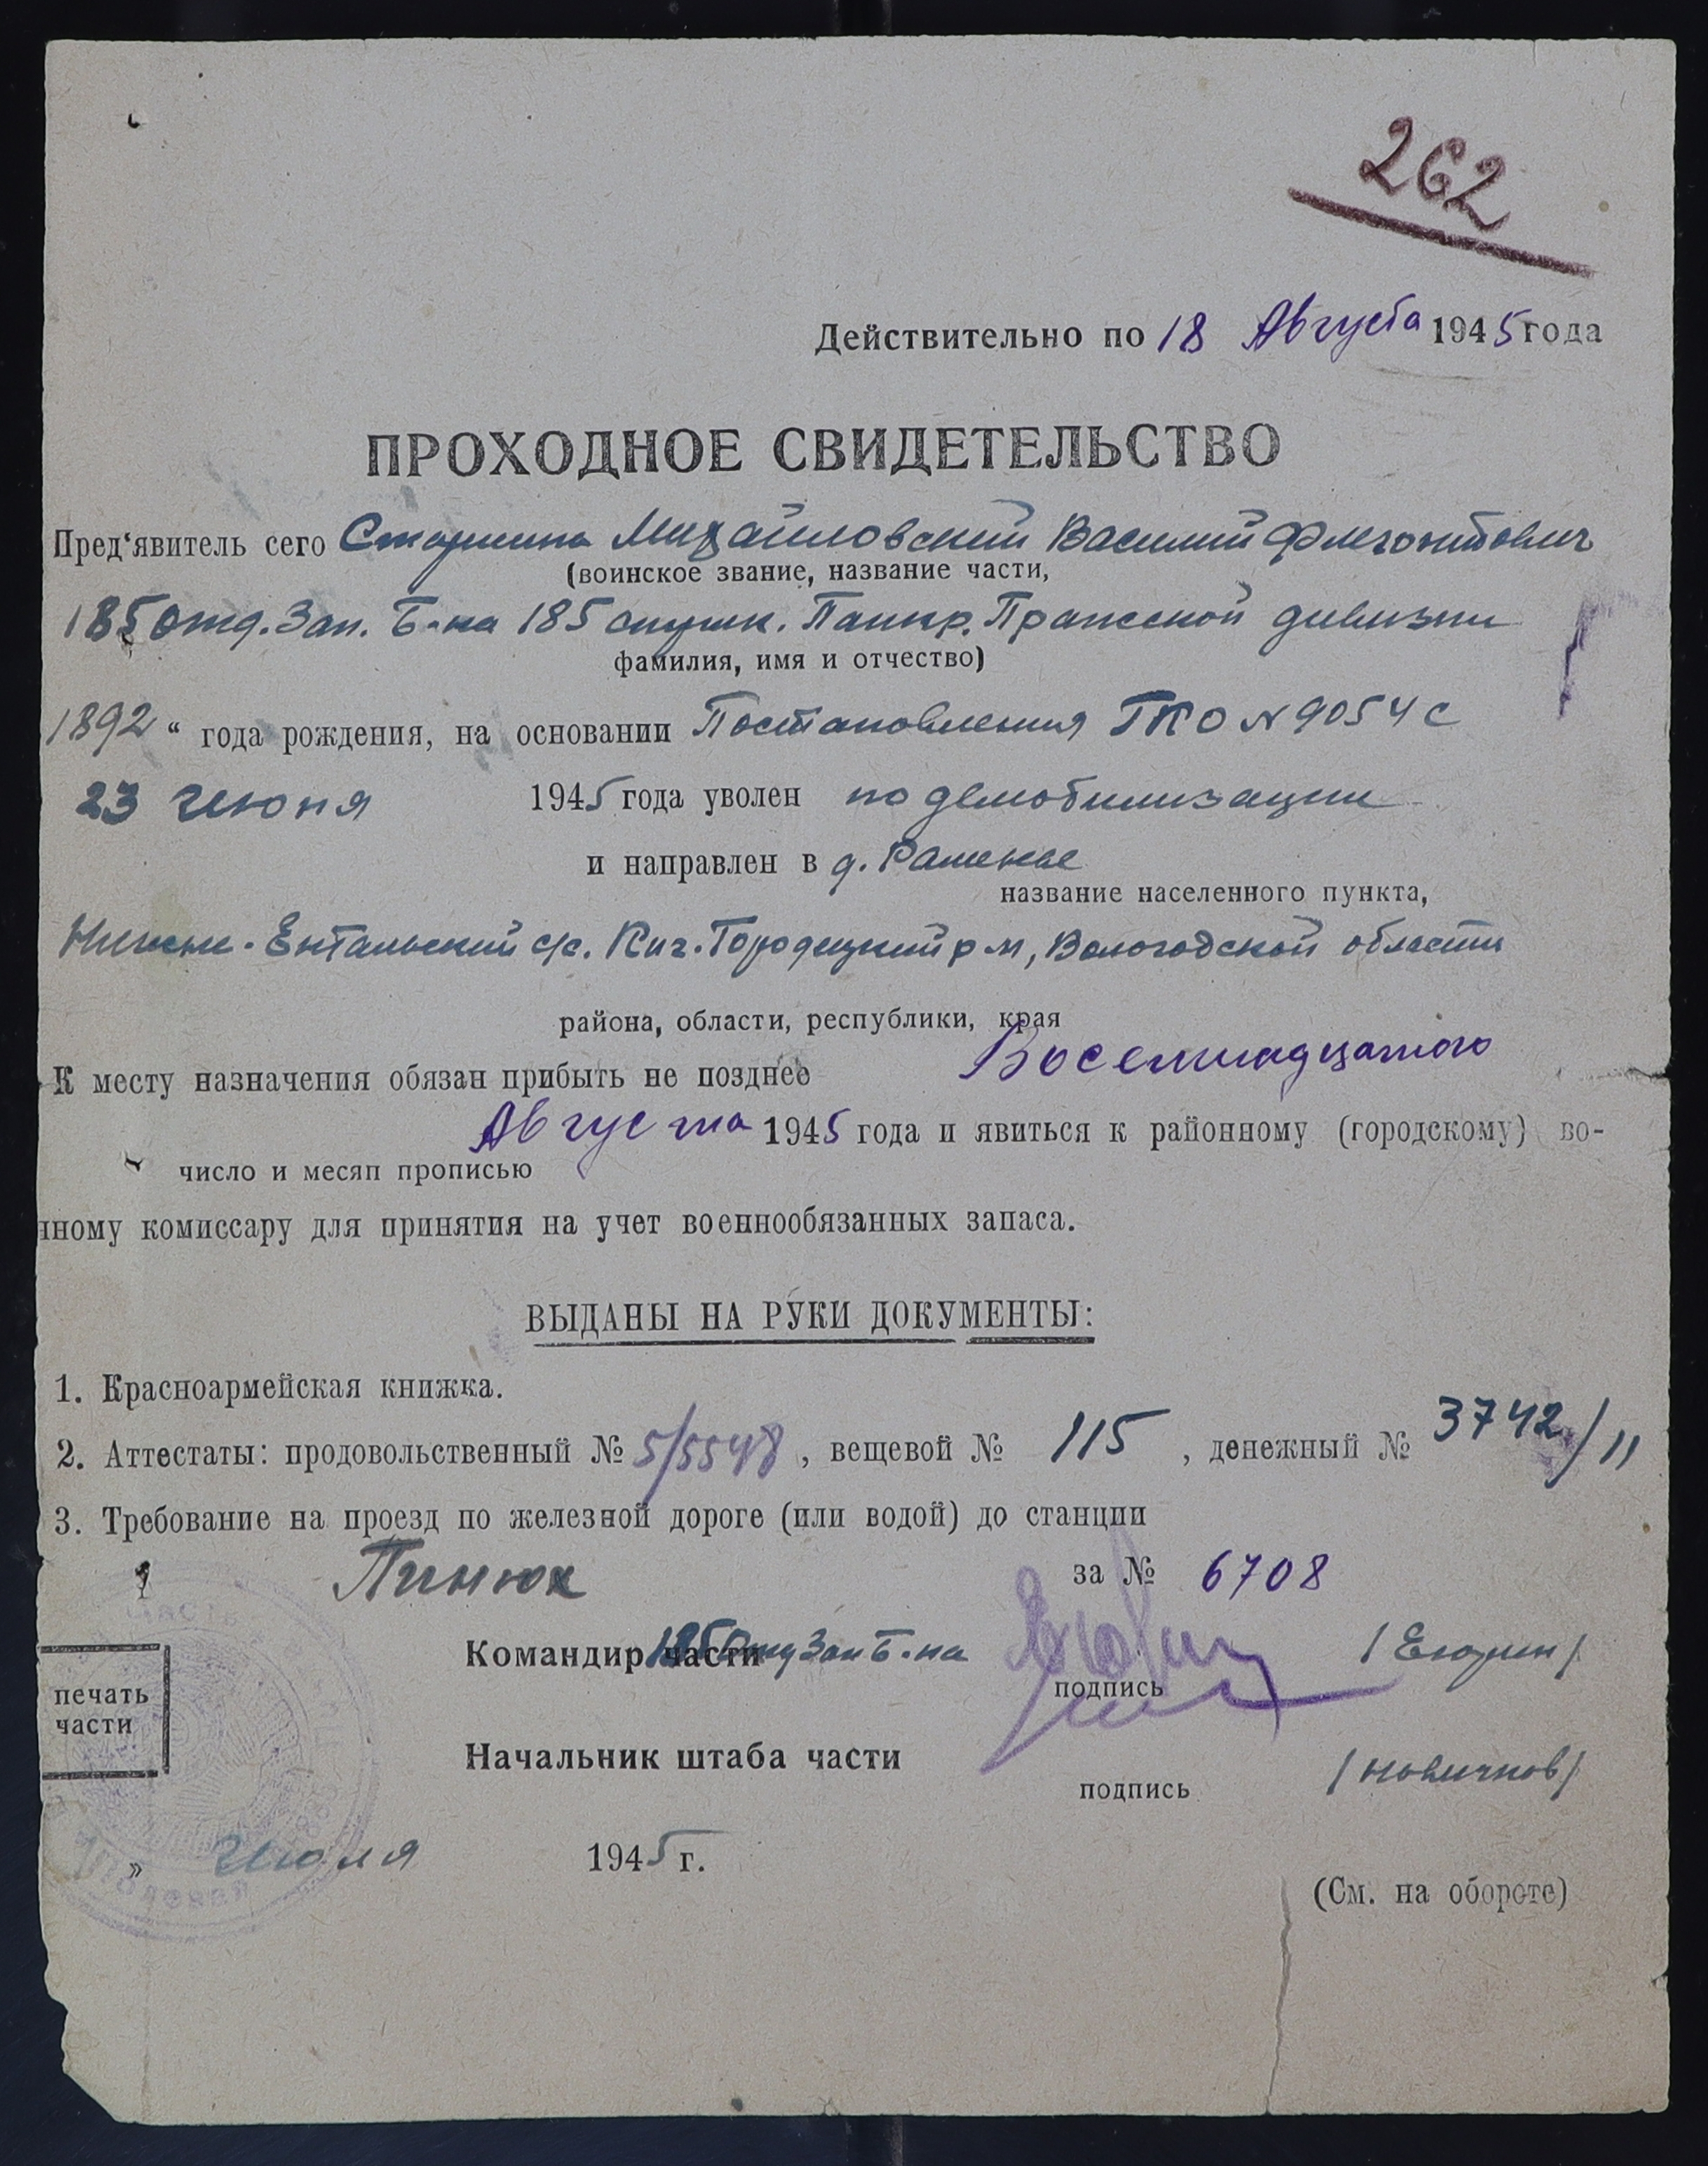 262
Действительно по 18 Августа 1945 года
ПРОХОДНОЕ СВИДЕТЕЛЬСТВО
Пред‘явитель сего Старшина Михайловский Василий Флегонтович
(воинское звание, название части,
185 отд. Зап. Б-на 185 стрелк. Панкр. Пражской дивизии
фамилия, имя и отчество)
1892 “ года рождения, на основании Постановления ГКО N 9054 с
23 Июня 1945 года уволен по демобилизации
и направлен в д. Раменье
название населенного пункта,
Нижне-Ентальский с/с. Кич.-Городецкий р-н, Вологодской области
района, области, республики, края
К месту назначения обязан прибыть не позднее Восемнадцатого
Августа 1945 года и явиться к районному (городскому) во-
число и месяц прописью
нному комиссару для принятия на учет военнообязанных запаса.
ВЫДАНЫ НА РУКИ ДОКУМЕНТЫ:
1. Красноармейская книжка.
2. Аттестаты: продовольственный № 5/5548, вещевой № 115, денежный № 3742/11
3. Требование на проезд по железной дороге (или водой) до станции
Пинюк за № 6708
Командир части 185 Отд Зап Б-на
подпись
печать
части
Начальник штаба части /Новичков/
подпись
» Июля 1945 г.
(См. на обороте)